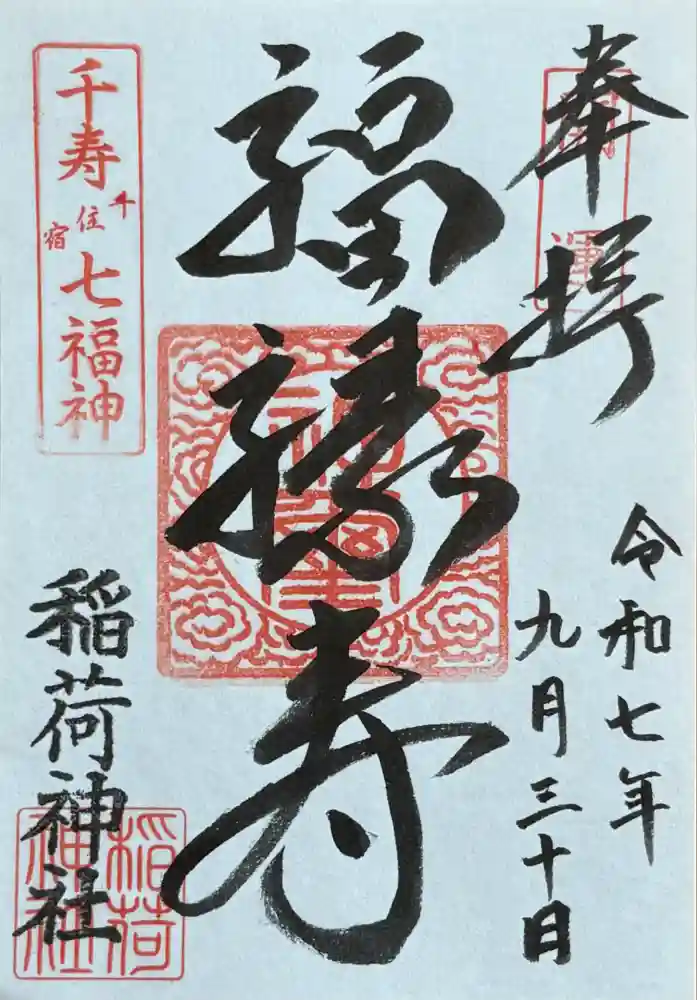 奉拝
開運
令和七年
九月三十日
福禄寿
千寿七福神
千住宿
稲荷神社
稲荷
神社